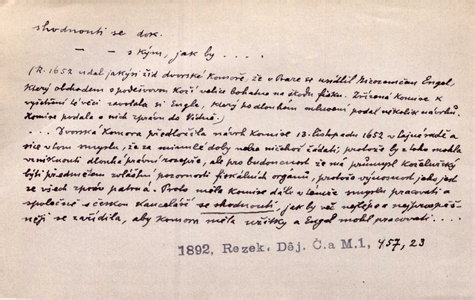 shodnouti se dok.
— — s kým, jak by . . . .
(R. 1652 udal jakýsi žid dvorské komoře, že v Praze se usídlil Engel,
který obchodem s podešvovou koží velice bohatne na škodu fisku. Zřízená komise k
vyšetření té věci zavolala si Engla, který po dlouhém mluvení podal několik návrhů.
Komise podala o nich zprávu do Vídně.)
. . . Dvorská komora předložila návrh komise 13. listopadu 1652 v tajné radě a
v tom smyslu, že za minulé doby nelze ničehož žádati, protože by z toho mohla
vzniknouti dlouhá právní rozepře, ale pro budoucnost že má průmysl koželužský
býti předmětem zvláštní pozornosti fiskálních orgánů, protože výnosnost jeho jest
ze všech zpráv patrná. Proto měla komise dále v tomže smyslu pracovati a
společně s českou kanceláří se shodnouti, jak by věc nejlépe a nejprospěš-
něji se zařídila, aby komora měla užitky a Engel mohl pracovati . . . .
1892, Rezek, Děj. Č. a M. 1, 457, 23